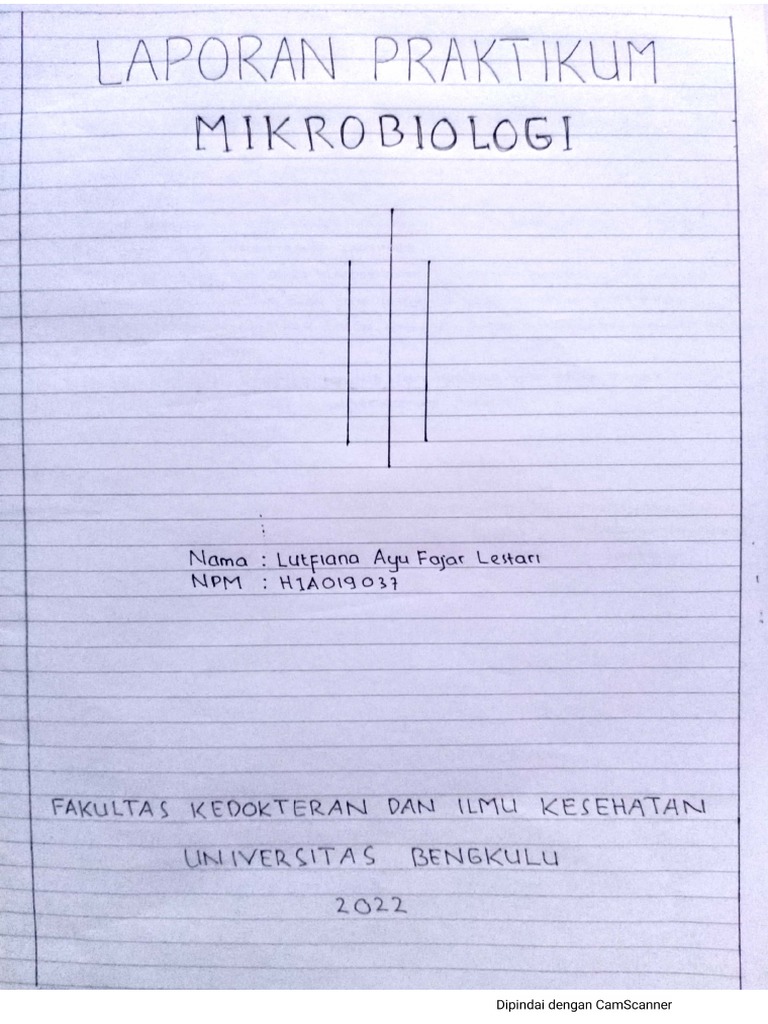 LAPORAN PRAKTIKUM
MIKROBIOLOGI
Nama : Lutfiana Ayu Fajar Lestari
NPM : H1A019037
FAKULTAS KEDOKTERAN DAN ILMU KESEHATAN
UNIVERSITAS BENGKULU
2022
Dipindai dengan CamScanner